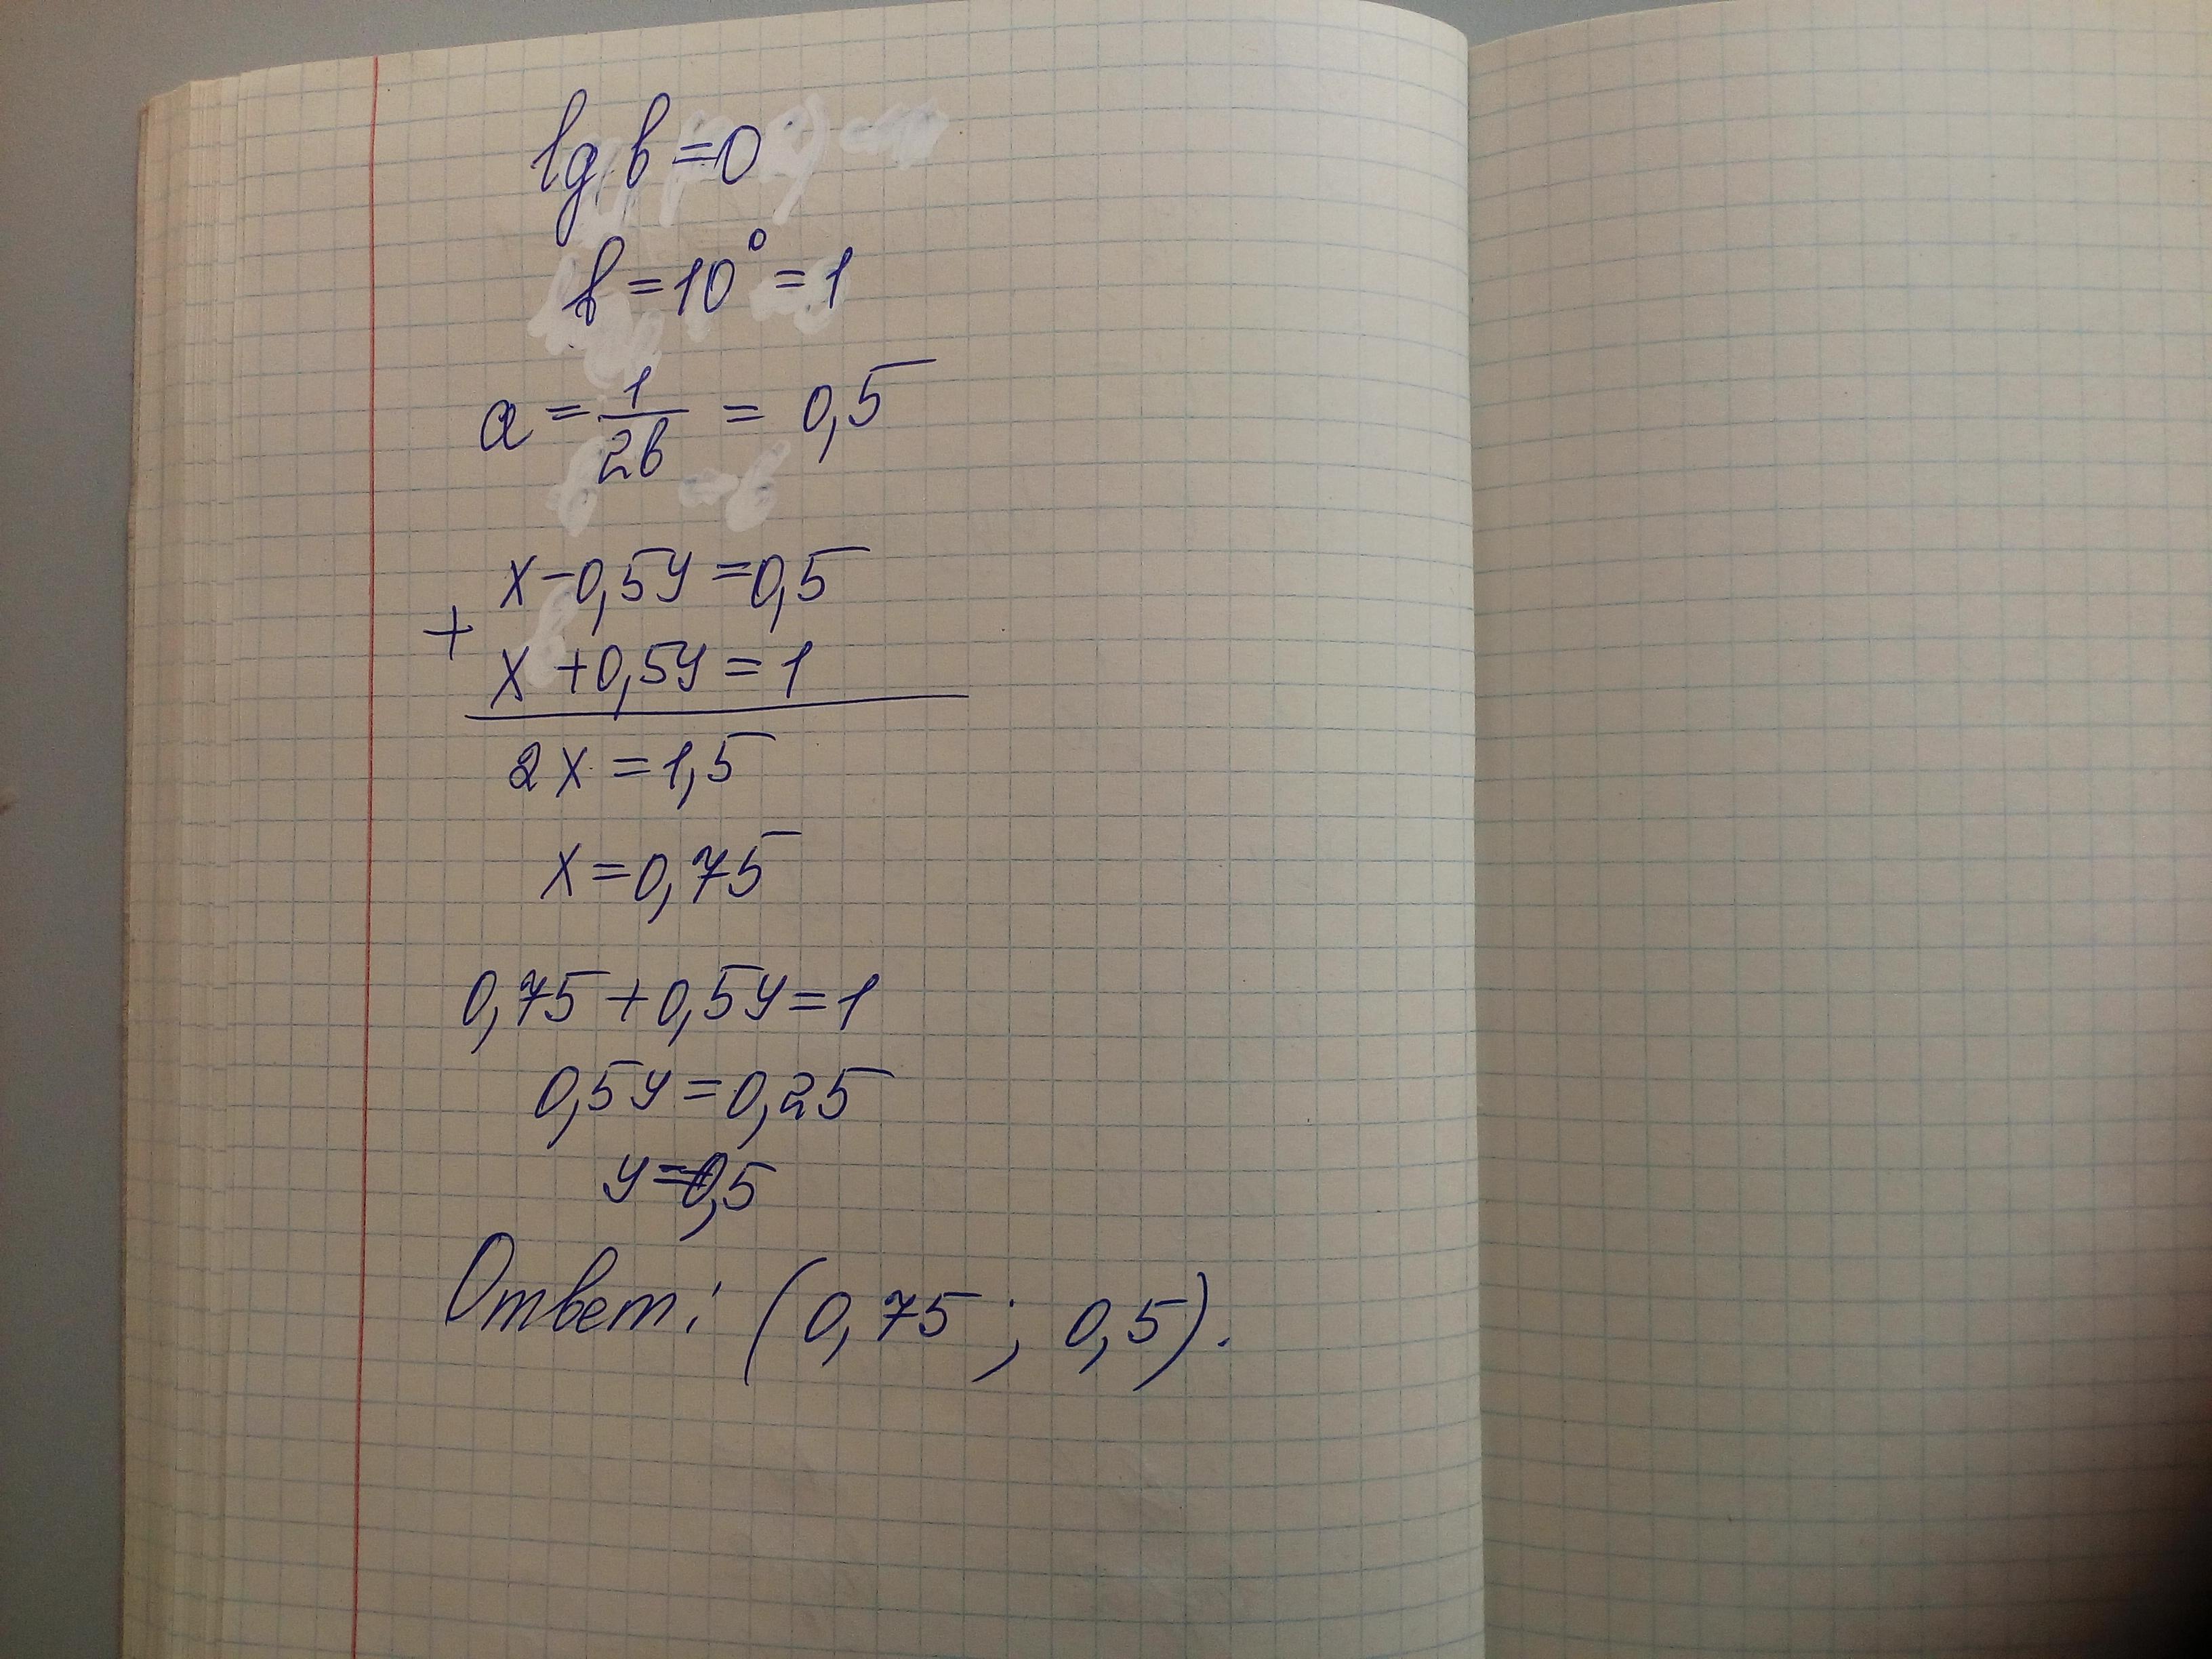 lg b = 0
b = 10⁰ = 1
a = 1/2b = 0,5
x - 0,5y = 0,5
+
x + 0,5y = 1
2x = 1,5
x = 0,75
0,75 + 0,5y = 1
0,5y = 0,25
y = 0,5
Ответ: (0,75 ; 0,5).